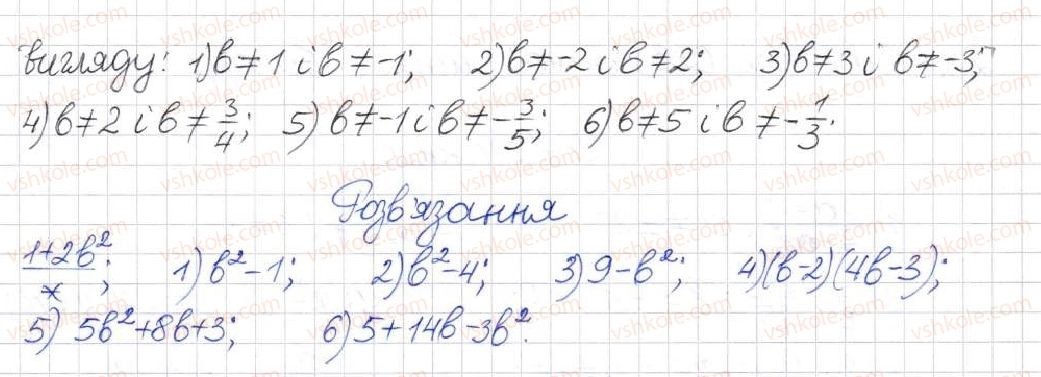 вигляду: 1) b≠1 і b≠-1; 2) b≠-2 і b≠2; 3) b≠3 і b≠-3;
4) b≠2 і b≠3/4; 5) b≠-1 і b≠-3/5; 6) b≠5 і b≠-1/3.
Розв'язання
(1+2b²)/*; 1) b²-1; 2) b²-4; 3) 9-b²; 4) (b-2)(4b-3);
5) 5b²+8b+3; 6) 5+14b-3b².